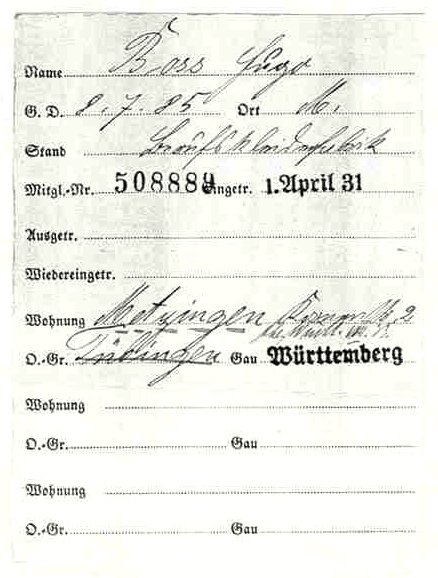 Name Boss Hugo
G. D. 8. 7. 85 Ort M.
Stand Berufskleiderfabrik
Mitgl.-Nr. 508889 Eingetr. 1. April 31
Ausgetr.
Wiedereingetr.
Wohnung Metzingen 2
O.-Gr. Tübingen Gau Württemberg
Wohnung
O.-Gr. Gau
Wohnung
O.-Gr. Gau